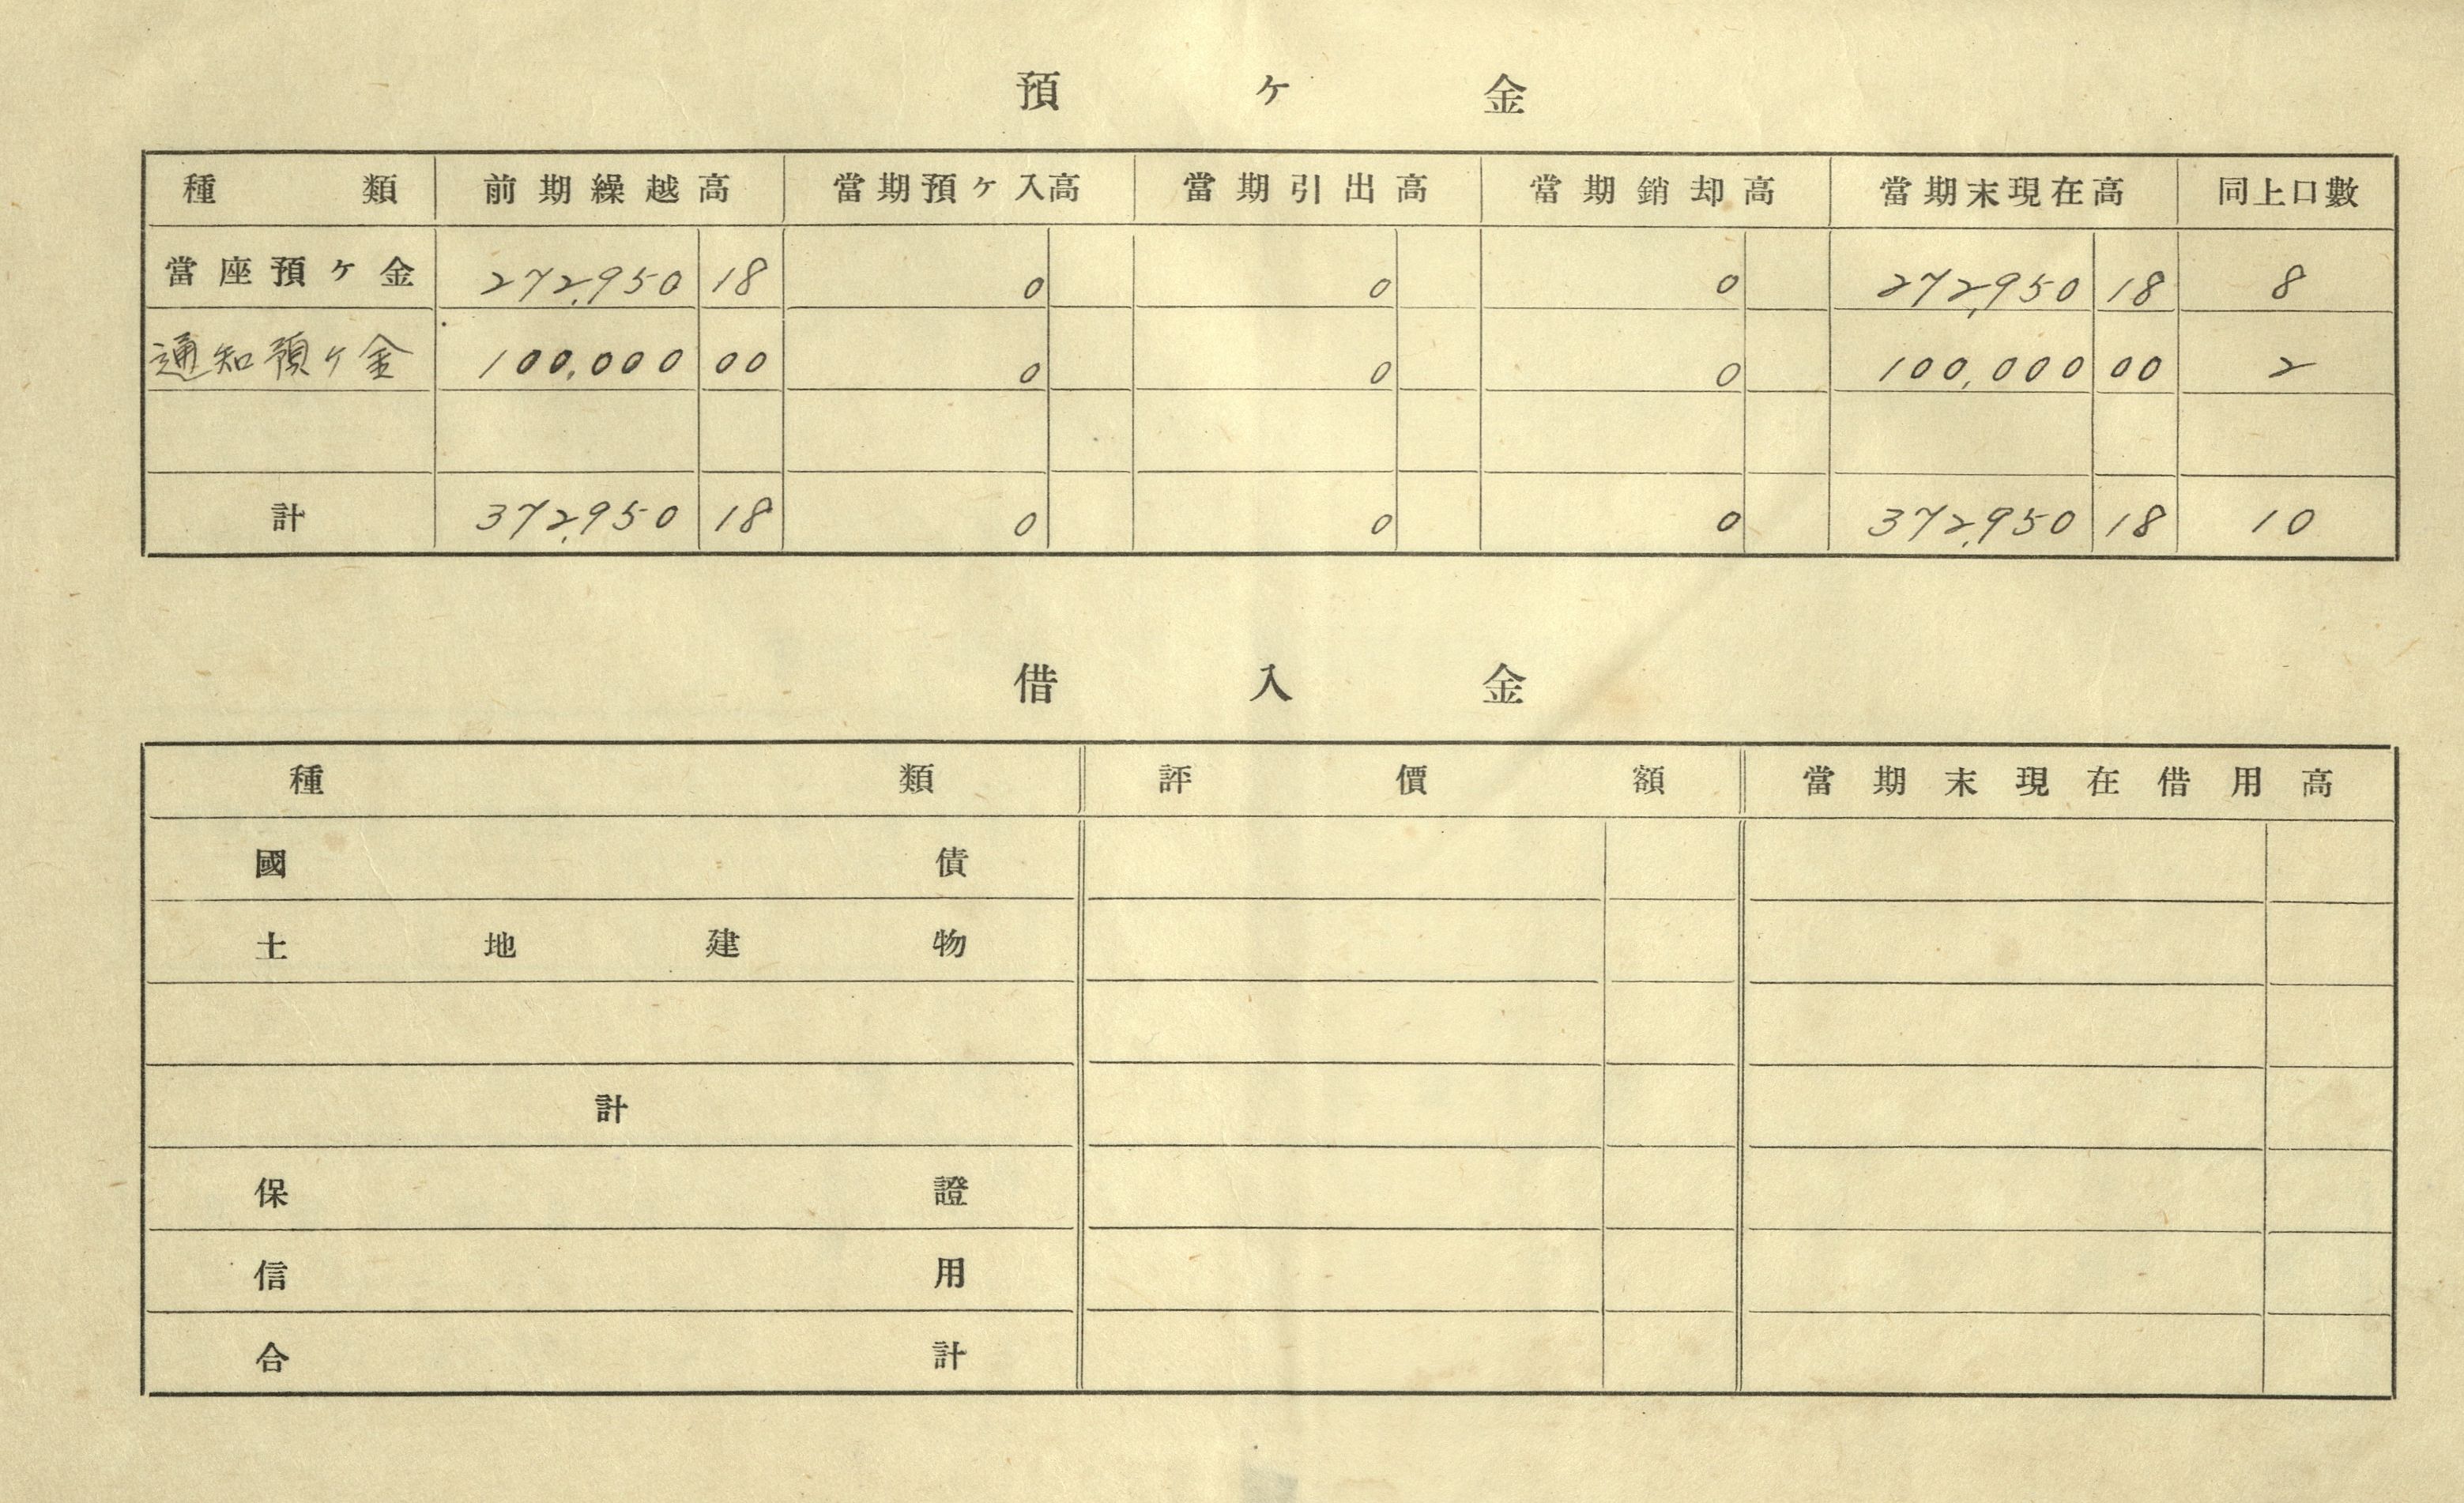 預ヶ金
種類 前期繰越高 當期預ヶ入高 當期引出高 當期銷却高 當期末現在高 同上口數
當座預ヶ金 272,950 18 0 0 0 272,950 18 8
通知預ヶ金 100,000 00 0 0 0 100,000 00 2
計 372,950 18 0 0 0 372,950 18 10
借入金
種類 評價額 當期末現在借用高
國債
土地建物
計
保證
信用
合計